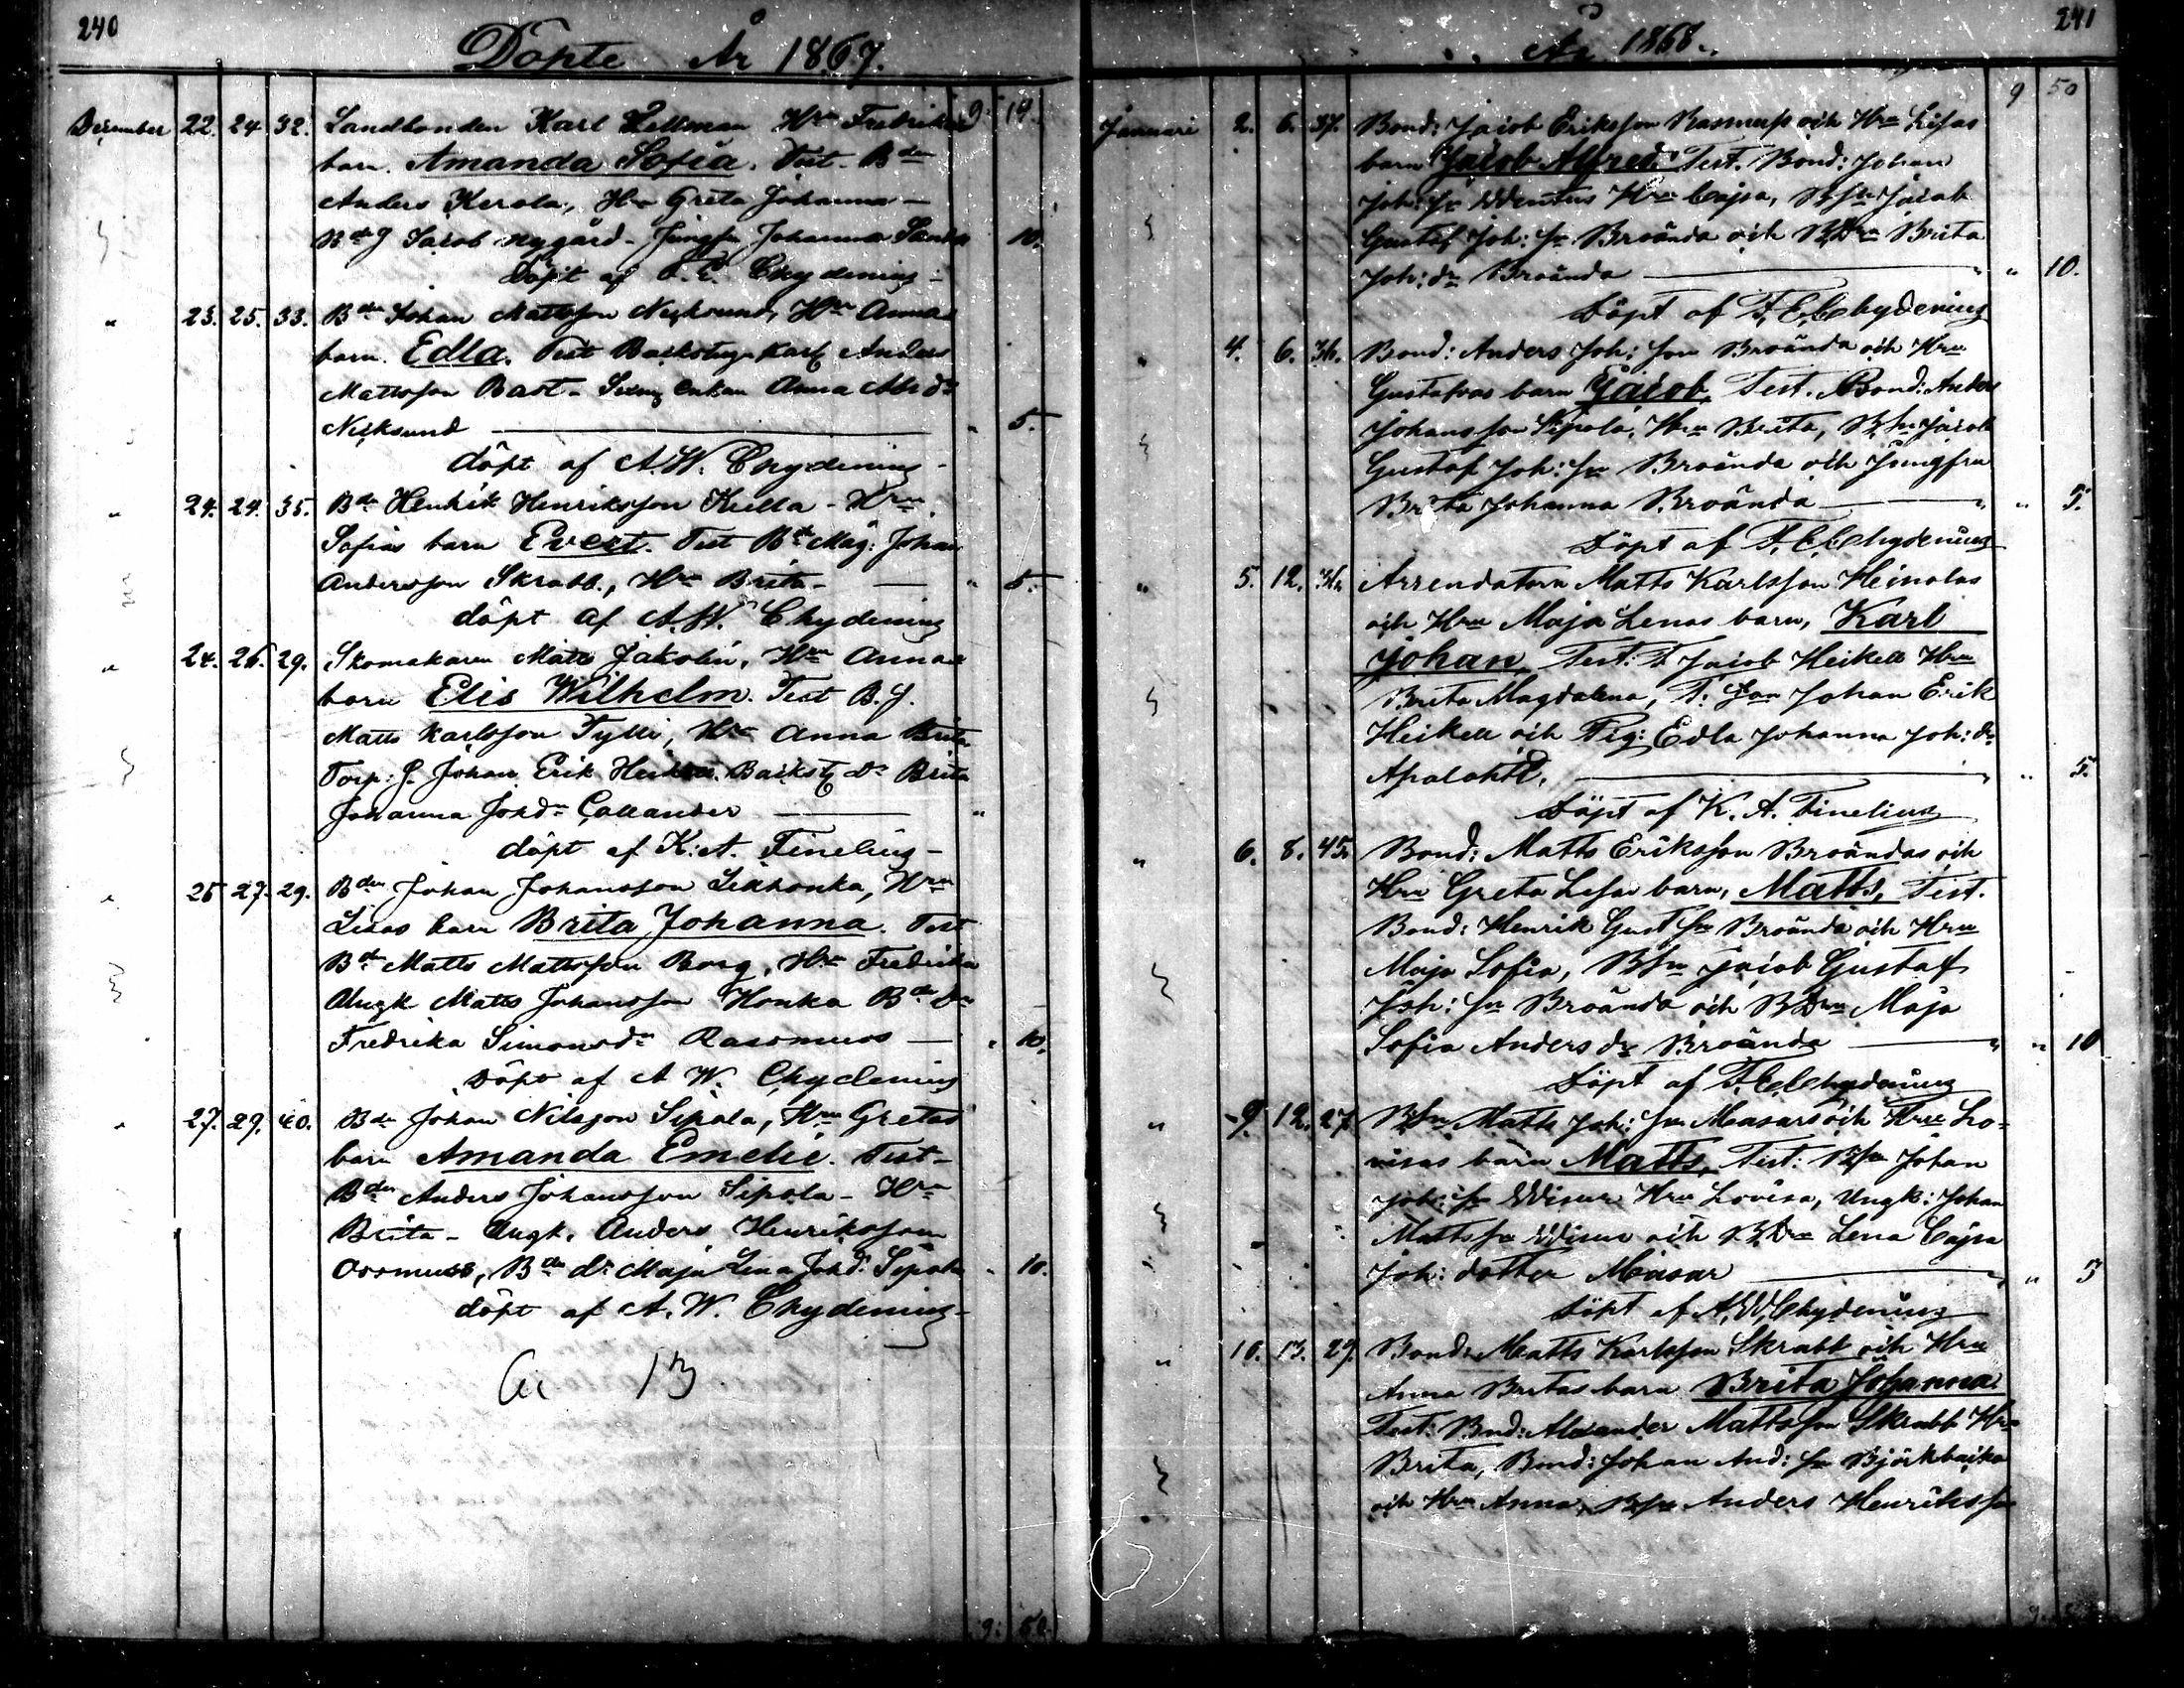 240
Döpte År 1867.
December 22. 24. 32. Landbonden Karl Hellman Hru Fredrikas 9. 10.
barn. Amanda Sofia. Test. Bden
Anders Kerola, Hru Greta Johanna —
Bds Jacob Nygård - Jungfu Johanna 10.
döpt af F. E. Chydenius
" 23. 25. 33. Bdn Johan Mattsson Neiksund, Hru Annas
barn. Edla. Test Backstug. Karl Anders
Mattsson Bast - enkan Anna
Neiksund — " 5.
döpt af A. W. Chydenius
" 24. 24. 35. Bdn Henrik Henriksson Kulla - Hru
Sofias barn Evert. Test Bds Måg: Johan
Andersson Skrabb, Hru Brita - " 5.
döpt af A. W. Chydenius
" 24. 26. 29. Skomakaren Matts Jakolin, Hru Annas
barn Elis Wilhelm. Test B. S.
Matts Karlsson Tylli, Hru Anna Brita
Torp: S. Johan Erik Heikell. Backst dr Brita
Johanna Johdr Callander — "
döpt af K. A. Finelius —
" 25 27. 29. Bden Johan Johansson Hru
Lisas barn Brita Johanna. Test
Bdn Matts Mattsson Borg, Hru Fredrika
Ungk Matts Johansson Honka Bds Dr
Fredrika Simonsdr Rassmuss — " 10.
Döpt af A W. Chydenius
" 27. 29. 40. Bdn Johan Nilsson Sipola, Hru Gretas
barn Amanda Emelie. Test -
Bden Anders Johansson Sipola - Hru
Brita - Ungk. Anders Henriksson
Orrmuss, Bds dr Maja Lena Johdr Sipola " 10.
döpt af A. W. Chydenius
13
9: 50.
241
År 1868.
9 50
Januari 2. 6. 37. Bond: Jacob Eriksson Rasmuss och Hru Lisas
barn Jacob Alfred. Test. Bond: Johan
Joh: Sn Hru Cajsa, BSn Jacob
Gustaf Joh: Sn Broända och BDrn Brita
Joh: dr Broända — " " 10.
Döpt af F. E. Chydenius
" 4. 6. 36. Bond: Anders Joh: Son Broända och Hru
Gustafvas barn Jacob, Test. Bond: Anders
Johansson Sipola, Hru Brita, BSn Jacob
Gustaf Joh: Sn Broända och Jungfru
Brita Johanna Broända — " " 5.
Döpt af F. E. Chydenius
" 5. 12. 36. Arrendatorn Matts Karlsson Heinolas
och Hru Maja Lenas barn, Karl
Johan, Test: T Jacob Heikell Hru
Brita Magdalena, T: Son Johan Erik
Heikell och Pig: Edla Johanna Joh: dr
Apalaht. — " " 5.
Döpt af K. A. Finelius
" 6. 8. 45. Bond: Matts Eriksson Broändas och
Hru Greta Lisas barn, Matts, Test.
Bond: Henrik Gust Sn Broända och Hru
Maja Sofia, BSn Jacob Gustaf
Joh: Sn Broända och BDrn Maja
Sofia Anders dr Broända — " " 10
Döpt af F. E. Chydenius
" 9. 12. 27. BSn Matts Joh: Sn Masars och Hru Lo-
visas barn Matts, Test: BSn Johan
Joh: Sn Hru Lovisa, Ungk: Johan
Matts Sn och BDrn Lena Cajsa
Joh: dotter Masar — " " 5
Döpt af A. W. Chydenius
" 10. 13. 29. Bond: Matts Karlsson Skrabb och Hru
Anna Britas barn Brita Johanna.
Test: Bond: Alexander Mattsson Skrabb Hru
Brita, Bond: Johan And: Sn Björkbacka
och Hru Anna, BSn Anders Henriksson